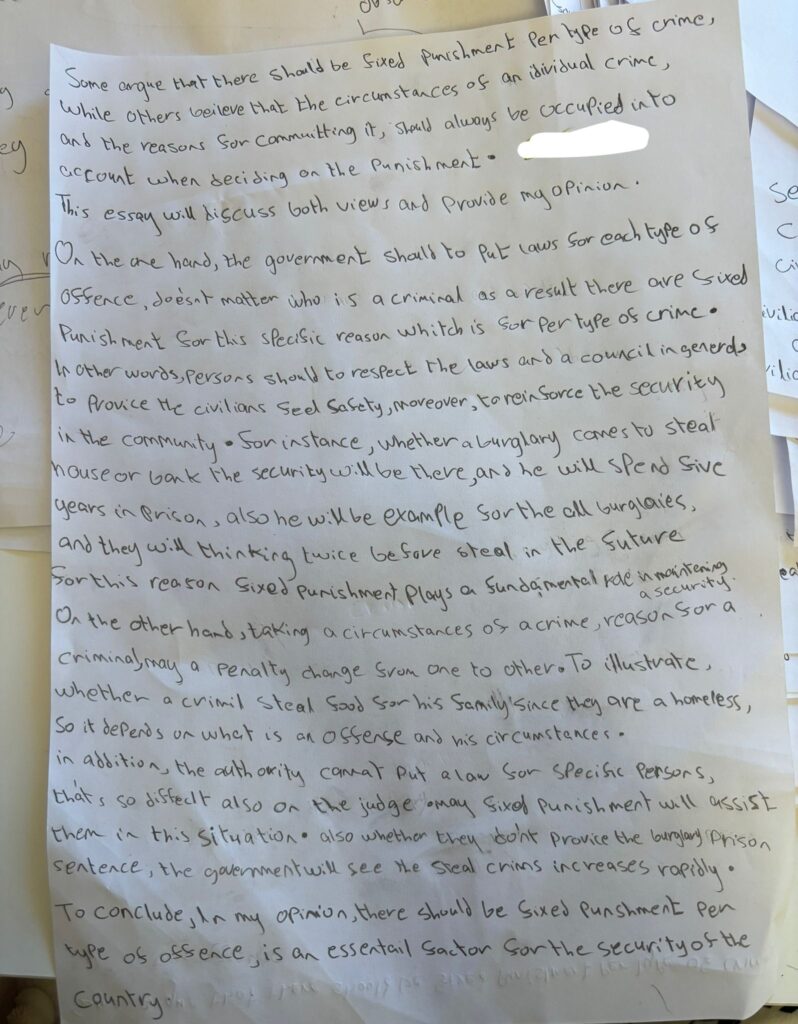 Some argue that there should be fixed punishment per type of crime,
while others beileve that the circumstances of an idividual crime,
and the reasons for committing it, should always be occupied into
account when deciding on the punishment.
This essay will discuss both views and provide my opinion.
On the one hand, the government should to put laws for each type of
offence, doesn't matter who is a criminal as a result there are fixed
punishment for this specific reason whitch is for per type of crime.
In other words, persons should to respect the laws and a council in general
to provice the civilians feel safety, moreover, to reinforce the security
in the community. for instance, whether a burglary comes to steal
house or bank the security will be there, and he will spend five
years in prison, also he will be example for the all burglaies,
and they will thinking twice before steal in the future
for this reason fixed punishment plays a fundaimental role in maintening
a security.
On the other hand, taking a circumstances of a crime, reason for a
criminal, may a penalty change from one to other. To illustrate,
whether a crimil steal food for his family since they are a homeless,
so it depends on what is an offense and his circumstances.
in addition, the authority cannat put a law for specific persons,
that's so diffeclt also on the judge. may fixed punishment will assist
them in this situation. also whether they don't provice the burglary prison
sentence, the government will see the steal crims increases rapidly.
To conclude, In my opinion, there should be fixed punshment per
type of offence, is an essentail factor for the security of the
country.